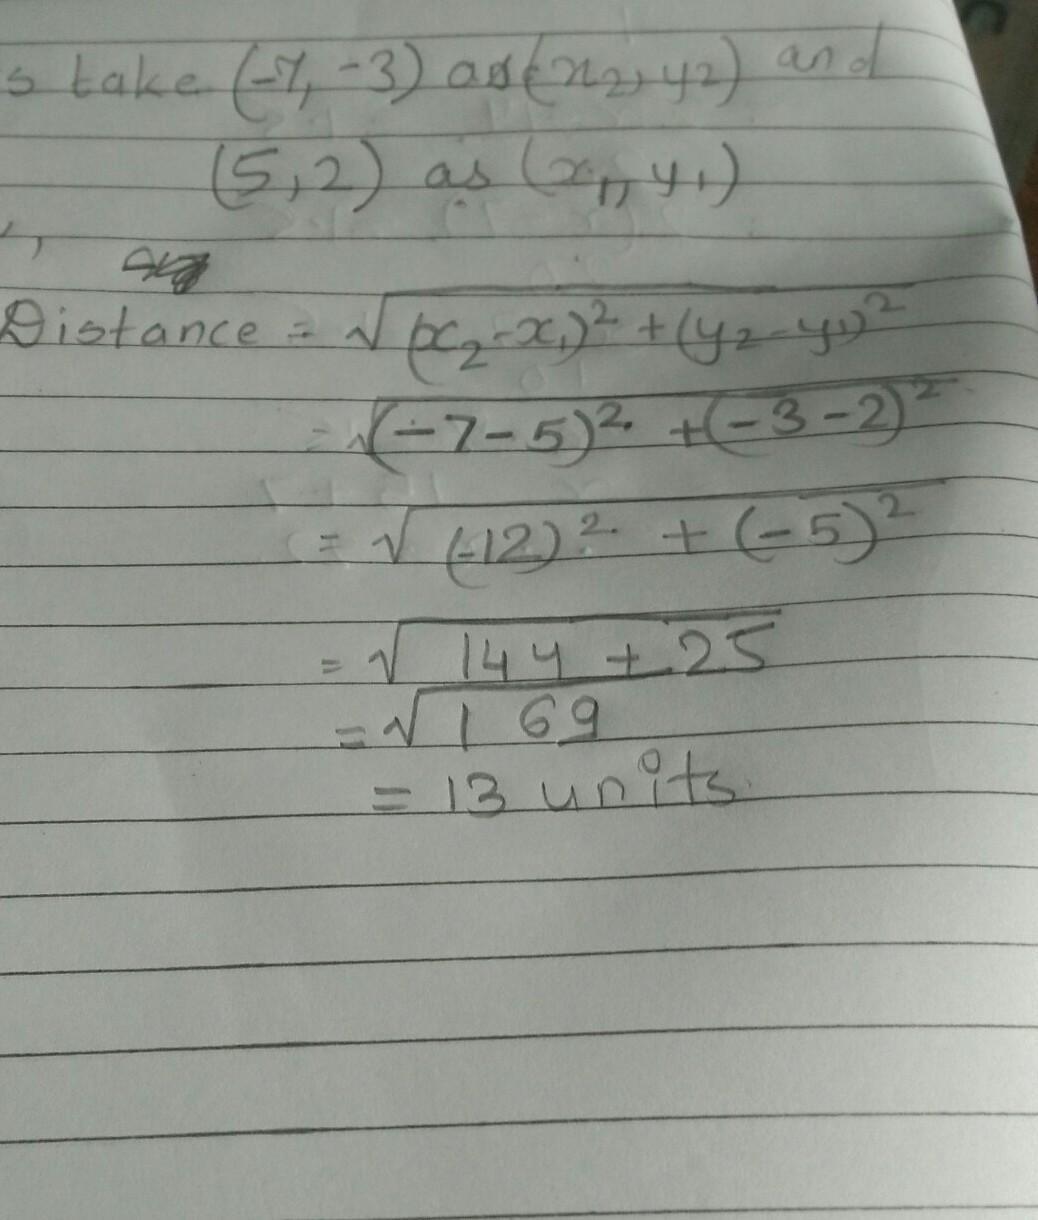 s take (-7, -3) as (x₂, y₂) and
(5, 2) as (x₁, y₁)
Distance = √(x₂-x₁)² + (y₂-y₁)²
= √(-7-5)² + (-3-2)²
= √(-12)² + (-5)²
= √144 + 25
= √169
= 13 units.